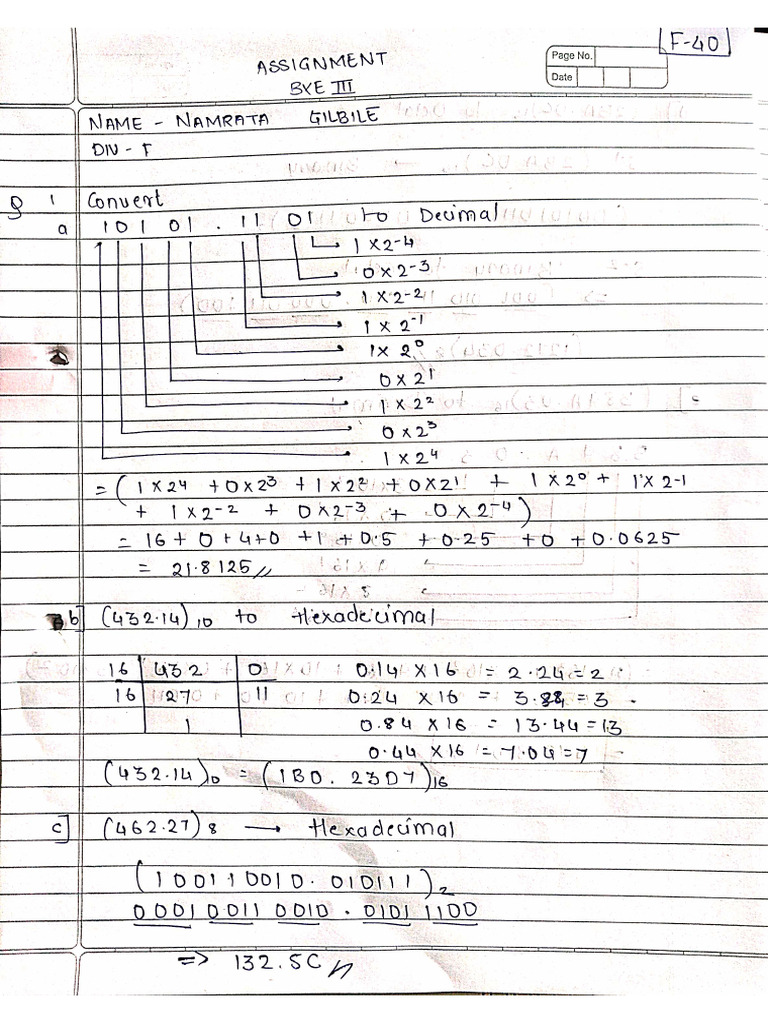 F-40
ASSIGNMENT
BXE III
Page No.
Date
NAME - NAMRATA GILBILE
DIV - F
Q 1 Convert
a 10101.1101 to Decimal
1 x 2-4
0 x 2-3
1 x 2-2
1 x 2-1
1x 2⁰
0 x 2¹
1 x 2²
0 x 2³
1 x 2⁴
= (1 x 2⁴ + 0 x 2³ + 1 x 2² + 0 x 2¹ + 1 x 2⁰ + 1 x 2-1
+ 1 x 2-2 + 0 x 2-3 + 0 x 2-4)
= 16 + 0 + 4 + 0 + 1 + 0.5 + 0.25 + 0 + 0.0625
= 21.8125 //
b] (432.14)10 to Hexadecimal
16 432 0 0.14 x 16 = 2.24 = 2
16 27 11 0.24 x 16 = 3.84 = 3
1 0.84 x 16 = 13.44 = 13
0.44 x 16 = 7.04 = 7
(432.14)10 = (1B0.23D7)16
c] (462.27)8 → Hexadecimal
(100110010.010111)2
0001 0011 0010 . 0101 1100
=> 132.5C //